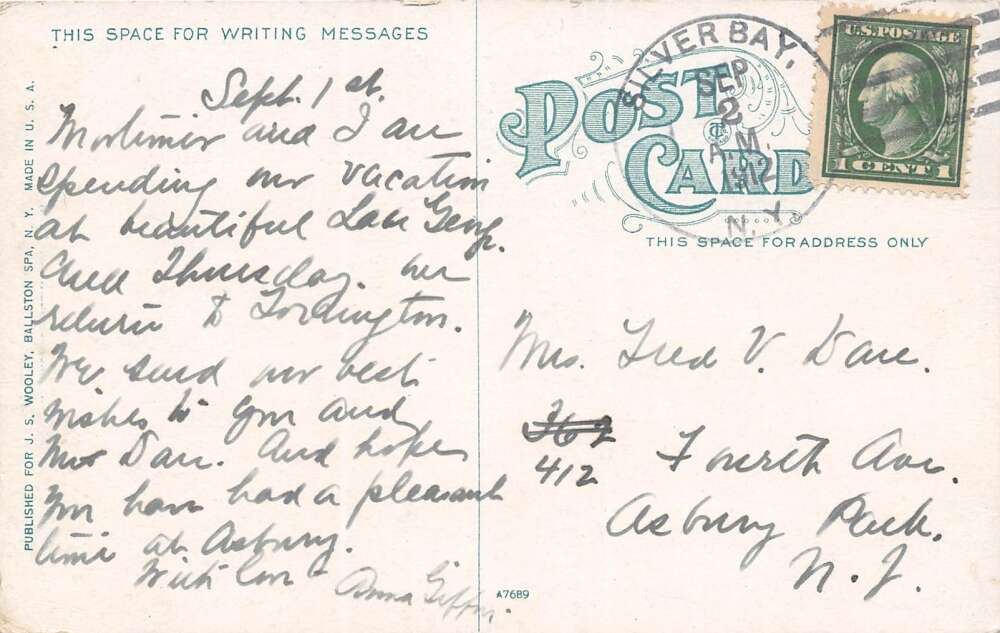 THIS SPACE FOR WRITING MESSAGES
Sept. 1st.
Mortimer and I are
spending our vacation
at beautiful Lake George.
And Thursday. we
return to Torrington.
We send our best
wishes to you and
Mr Dare. And hope
you have had a pleasant
time at Asbury.
With love
Anna
PUBLISHED FOR J. S. WOOLEY, BALLSTON SPA, N. Y. MADE IN U. S. A.
POST CARD
SILVER BAY,
SEP
2
A.M.
1912
N.Y.
U.S. POSTAGE
1 CENT 1
THIS SPACE FOR ADDRESS ONLY
Mrs. Fred V. Dare.
412 Fourth Ave.
Asbury Park.
N. J.
A7689